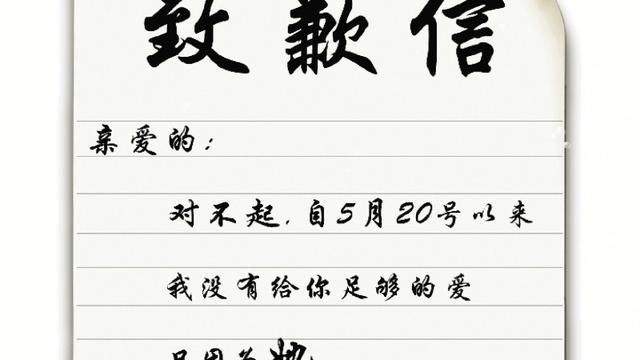 致歉信
亲爱的：
对不起，自5月20号以来
我没有给你足够的爱
只因为她